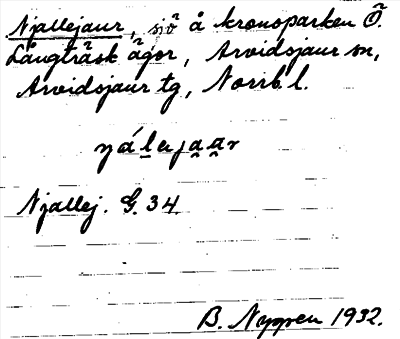 Njallejaur, sjö å kronoparken Ö.
Långträsk ägor, Arvidsjaur sn,
Arvidsjaur tg, Norrb. l.
Njallej. G. 34.
B. Nygren 1932.